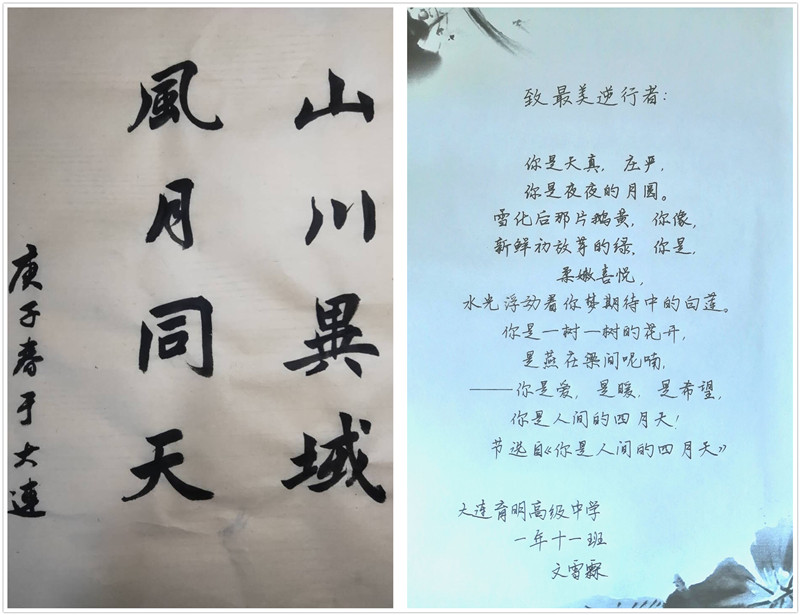 山川異域
風月同天
庚子春于大連
致最美逆行者：
你是天真，庄严，
你是夜夜的月圆。
雪化后那片鹅黄，你像，
新鲜初放芽的绿，你是，
柔嫩喜悦，
水光浮动着你梦期待中的白莲。
你是一树一树的花开，
是燕在梁间呢喃，
——你是爱，是暖，是希望，
你是人间的四月天！
节选自《你是人间的四月天》
大连育明高级中学
一年十一班
文雪霖